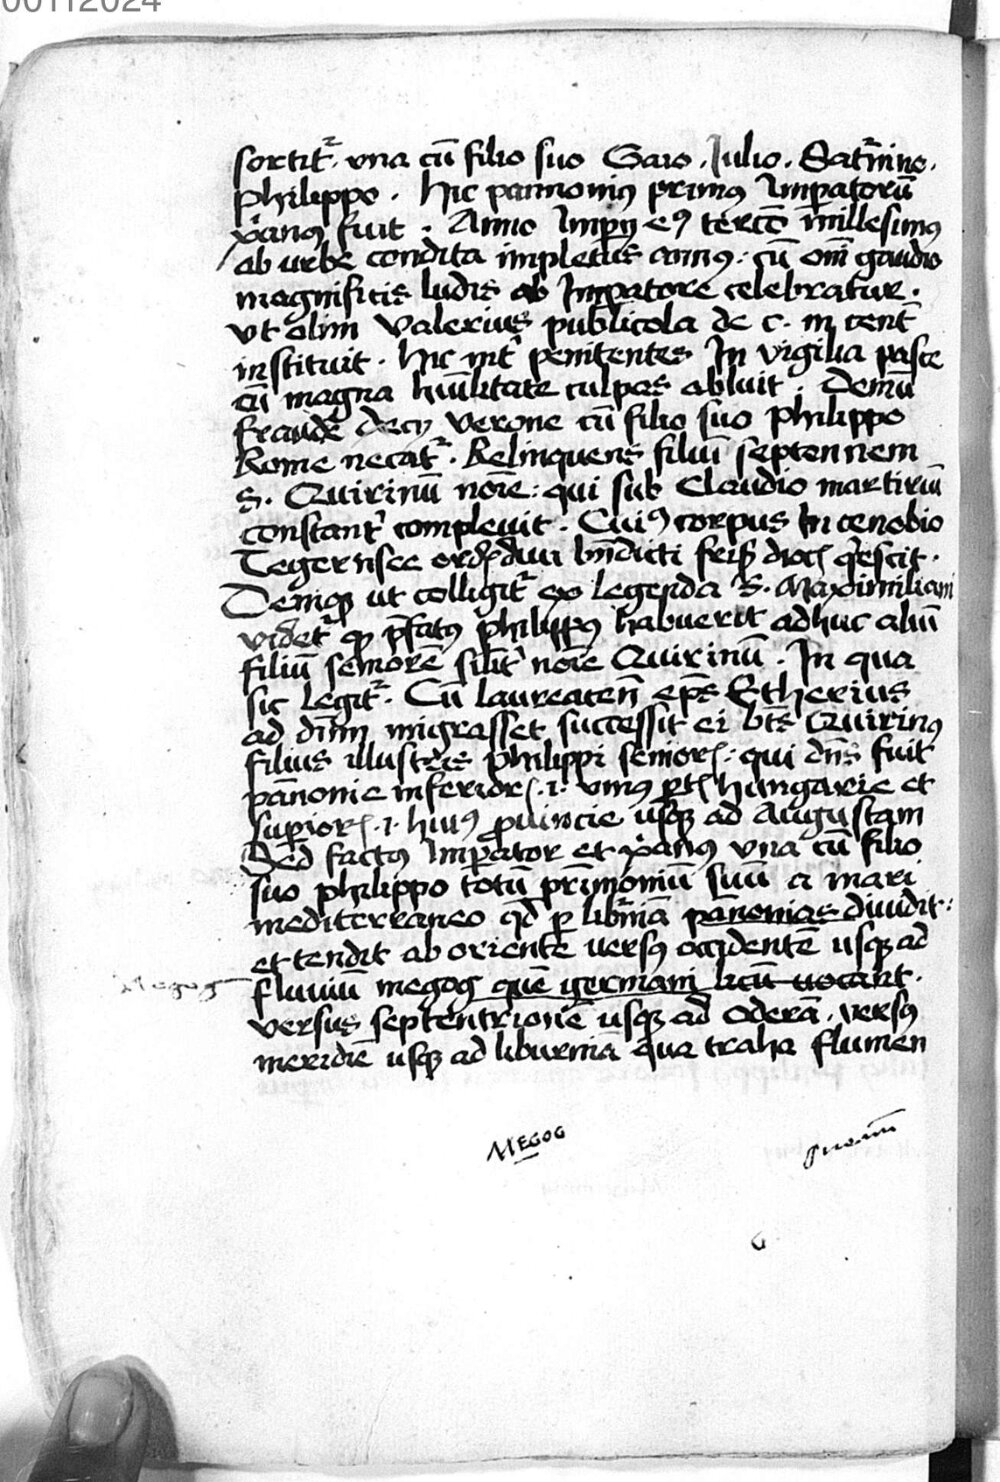 00112024
sortit᷑. vna cū filio suo Gaio. Julio. Sat᷑nino.
philippo. hic pannoniꝰ primꝰ Imꝑatorū
xp̄ianꝰ fuit. Anno Imꝑij eiꝰ tercō millesimus
ab urbe condita impletus annꝰ: cū om̄i gaudio
magnificis ludis ab Imꝑatore celebratur.
vt olim Valerius publicola de c. in cent̄
instituit. hic int᷑ penitentes In vigilia pasce
cū magna hūilitate culpas abluit. Demū
fraude decij verone cū filio suo philippo
Rome necat᷑. Relinquens filiū septennem
S. Quirinū noīe: qui sub Claudio martiriū
constant᷑ compleuit. Cuiꝰ corpus In cenobio
Tegernsee ord̄ diui bn̄dicti frisꝭ dioc̄ q̇escit.
Deniqꝫ ut colligit᷑ ex legenda S. Maximiliani
videt᷑ qꝫ p̄fatꝰ philippꝰ habuerit adhuc aliū
filiū seniorē silit᷑ noīe Quirinū. In qua
sic legit᷑. Cū laureaten̄ ep̄s Etherius
ad dn̄m migrasset successit ei bt̄s Quirinꝰ
filius illustris philippi seniorꝭ: qui dn̄s fuit
pānonie inferiorꝭ .i. vniꝰ ꝑtꝭ hungarie et
suꝑiorꝭ .i. huiꝰ ꝓuincie usqꝫ ad Augustam
Sed factꝰ Imꝑator et xp̄ianꝰ vna cū filio
suo philippo totū pr̄imoniū suū a mari
mediterraneo qd̄ ꝑ liburniā pānonias diuidit:
et tendit ab oriente versꝰ occidentē usqꝫ ad
fluuiū megog quē germani licū uocant.
versus septentrionē usqꝫ ad Oderā. versꝰ
meridiē usqꝫ ad liburniā qua traha flumen
Megog
MEGOG